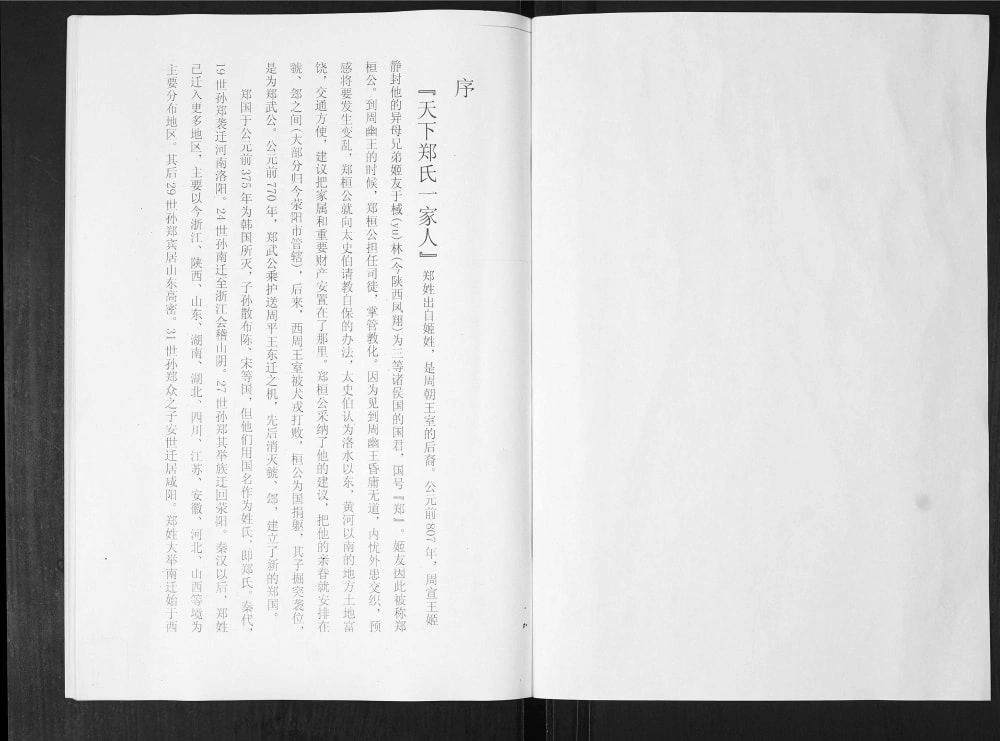 序
『天下郑氏一家人』郑姓出自姬姓，是周朝王室的后裔。公元前807年，周宣王姬
静封他的异母兄弟姬友于棫(yu)林(今陕西凤翔)为三等诸侯国的国君，国号『郑』。姬友因此被称郑
桓公。到周幽王的时候，郑桓公担任司徒，掌管教化。因为见到周幽王昏庸无道，内忧外患交织，预
感将要发生变乱，郑桓公就向太史伯请教自保的办法，太史伯认为洛水以东，黄河以南的地方土地富
饶，交通方便，建议把家属和重要财产安置在了那里。郑桓公采纳了他的建议，把他的亲眷就安排在
虢、郐之间(大部分归今荥阳市管辖)，后来，西周王室被犬戎打败，桓公为国捐躯，其子掘突袭位，
是为郑武公。公元前770年，郑武公乘护送周平王东迁之机，先后消灭虢、郐，建立了新的郑国。
郑国于公元前375年为韩国所灭，子孙散布陈、宋等国，但他们用国名作为姓氏，即郑氏。秦代，
19世孙郑袭迁河南洛阳。24世孙南迁至浙江会稽山阴。27世孙郑其举族迁回荥阳。秦汉以后，郑姓
已迁入更多地区，主要以今浙江、陕西、山东、湖南、湖北、四川、江苏、安徽、河北、山西等境为
主要分布地区。其后29世孙郑宾居山东高密。31世孙郑众之子安世迁居咸阳。郑姓大举南迁始于西